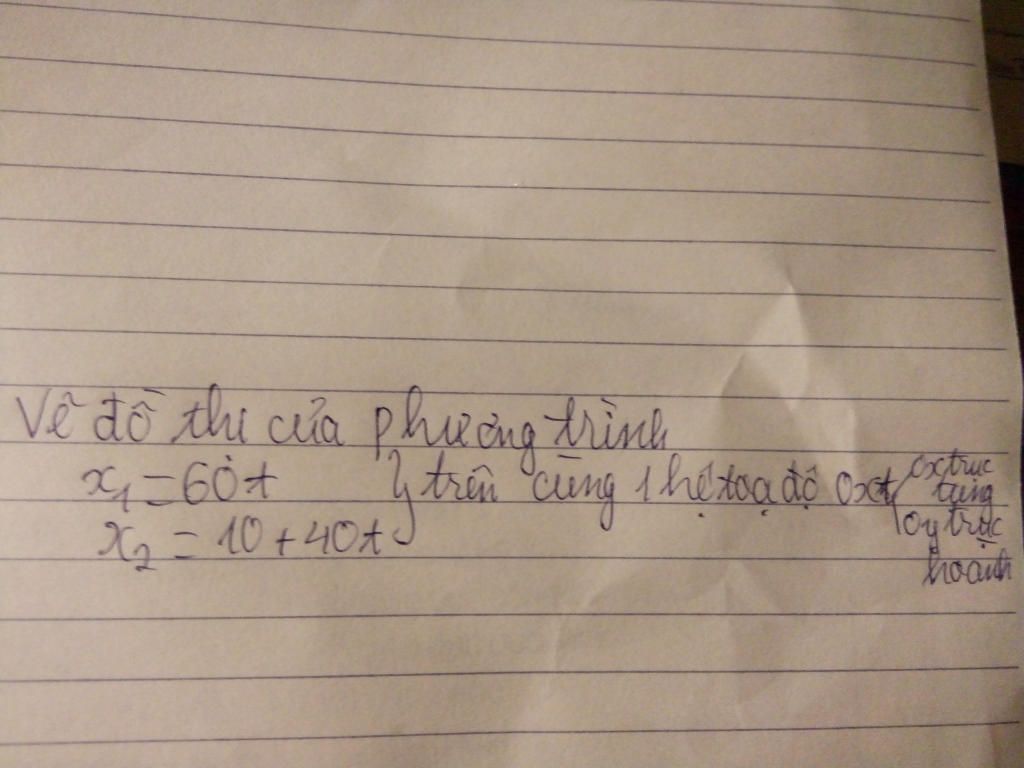 Vẽ đồ thị của phương trình
x₁ = 60t } trên cùng 1 hệ tọa độ oxt / ox trục tung
x₂ = 10 + 40t oy trục hoành